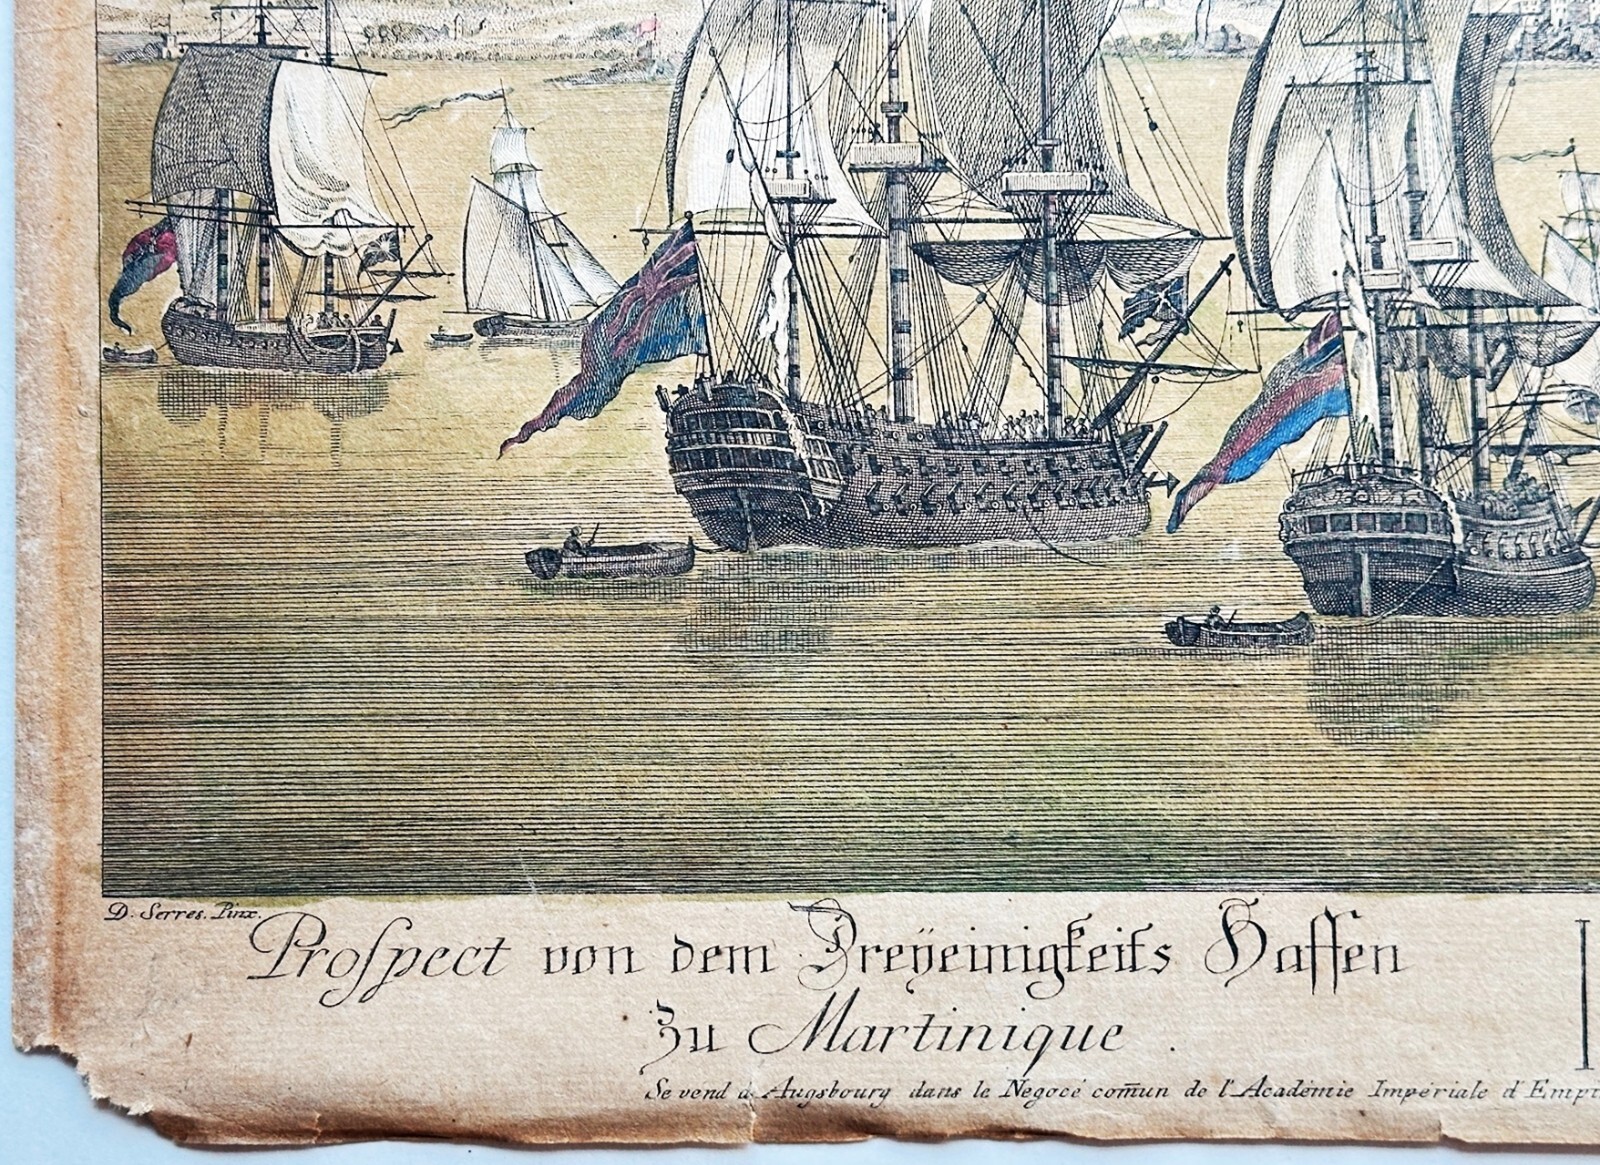 D. Serres. Pinx.
Proſpect von dem Dreÿeinigkeits Haffen
zu Martinique.
Se vend à Augsbourg dans le Negocé com̄un de l'Academie Imperiale d'Empi